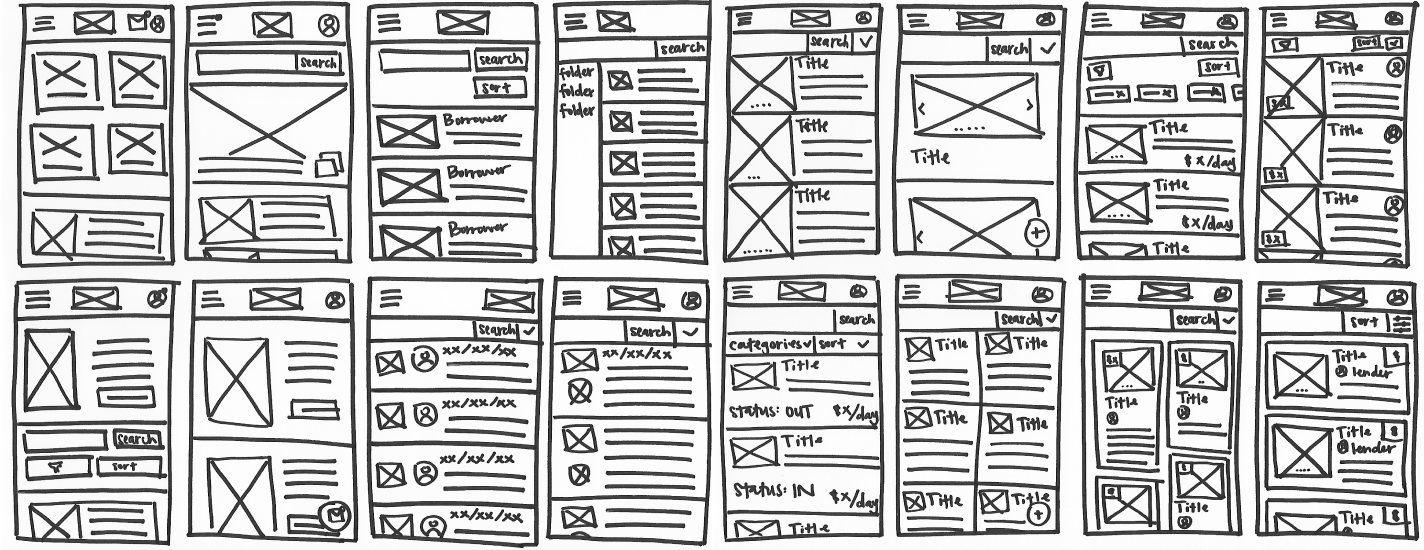 search
search
sort
Borrower
Borrower
Borrower
search
folder
folder
folder
search
Title
Title
Title
search
Title
search
sort
Title
$x/day
Title
$x/day
Title
sort
Title
$x
Title
$x
Title
$x
search
sort
search
xx/xx/xx
xx/xx/xx
xx/xx/xx
xx/xx/xx
search
xx/xx/xx
search
categories sort
Title
Status: OUT $x/day
Title
Status: IN $x/day
Title
search
Title Title
Title Title
Title Title
search
$x $
Title Title
$
Title
sort
Title $
lender
Title $
lender
Title $